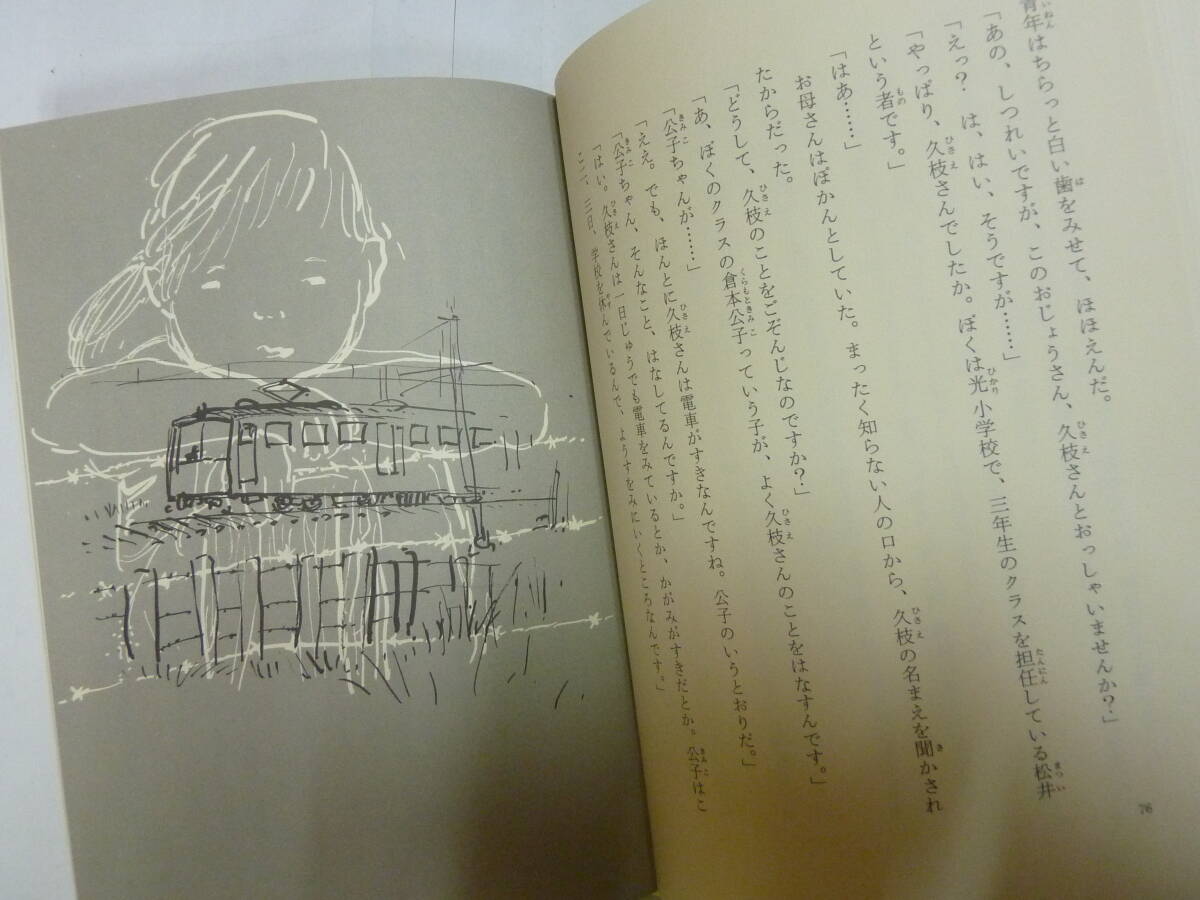 青年はちらっと白い歯をみせて、ほほえんだ。
「あの、しつれいですが、このおじょうさん、久枝さんとおっしゃいませんか？」
「えっ？　は、はい、そうですが……」
「やっぱり、久枝さんでしたか。ぼくは光小学校で、三年生のクラスを担任している松井
という者です。」
「はあ……」
お母さんはぽかんとしていた。まったく知らない人の口から、久枝の名まえを聞かされ
たからだった。
「どうして、久枝のことをごぞんじなのですか？」
「あ、ぼくのクラスの倉本公子っていう子が、よく久枝さんのことをはなすんです。」
「公子ちゃんが……」
「ええ。でも、ほんとに久枝さんは電車がすきなんですね。公子のいうとおりだ。」
「公子ちゃん、そんなこと、はなしてるんですか。」
「はい。久枝さんは一日じゅうでも電車をみているとか、かがみがすきだとか。公子はこ
こ二、三日、学校を休んでいるんで、ようすをみにいくところなんです。」
76